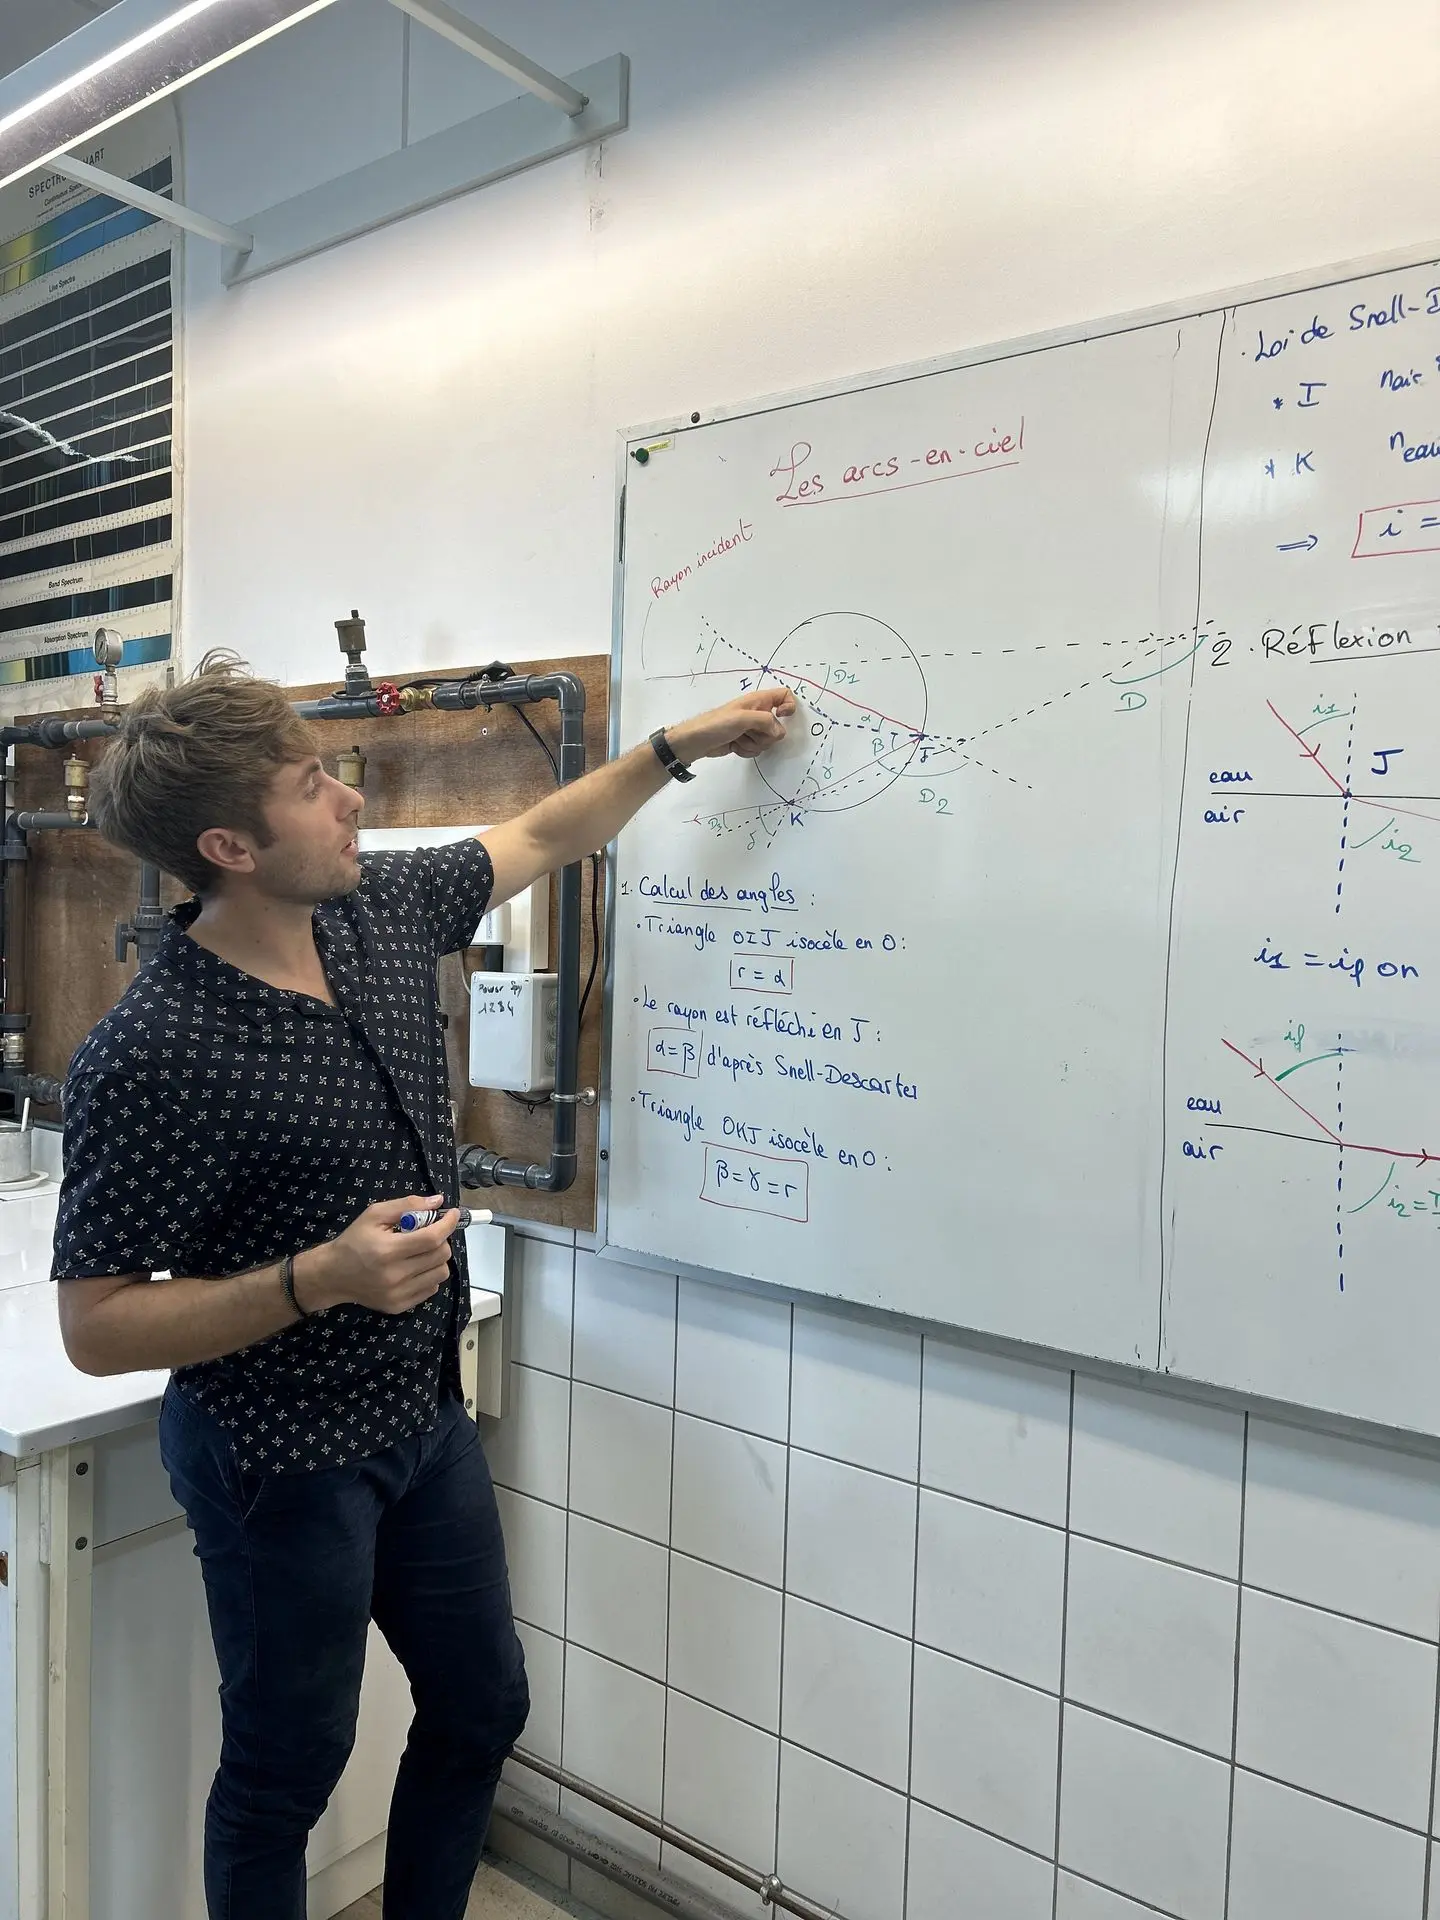 SPECTRUM CHART
Continuous Spectra
Line Spectra
Band Spectrum
Absorption Spectrum
Power Spy
1234
Les arcs-en-ciel
Rayon incident
i
I
r
D1
O
α
β
J
γ
D2
D
D3
δ
K
1. Calcul des angles :
• Triangle OIJ isocèle en O :
r = α
• Le rayon est réfléchi en J :
α = β d'après Snell-Descartes
• Triangle OKJ isocèle en O :
β = γ = r
• Loi de Snell-D
* I nair
* K neau
⇒ i =
2. Réflexion
i1
eau
J
air
i2
i1 = iℓ on
iℓ
eau
air
i2 =